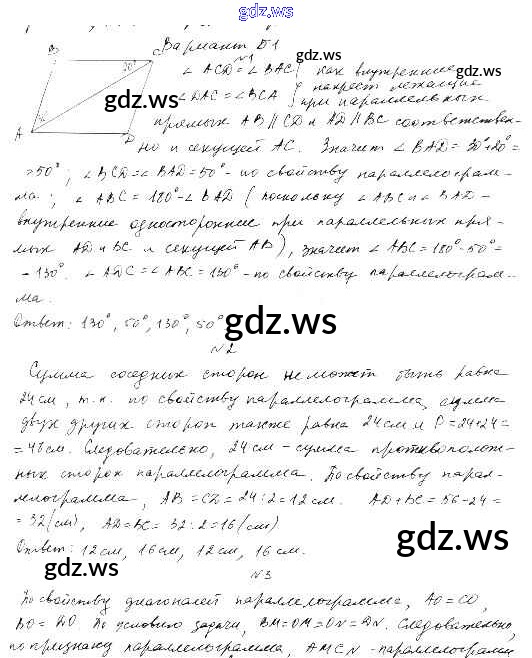 gdz.ws
Вариант Б1
№1
B C 30°
A D
∠ ACD = ∠ BAC как внутренние
∠ DAC = ∠ BCA накрест лежащие
при параллельных
прямых AB || CD и AD || BC соответствен-
но и секущей AC. Значит ∠ BAD = 30°+20° =
= 50°; ∠ BCD = ∠ BAD = 50° - по свойству параллелограм-
ма; ∠ ABC = 180° - ∠ BAD (поскольку ∠ ABC и ∠ BAD -
внутренние односторонние при параллельных пря-
мых AD и BC и секущей AB), значит ∠ ABC = 180° - 50° =
= 130°. ∠ ADC = ∠ ABC = 130° - по свойству параллелограм-
ма.
Ответ: 130°, 50°, 130°, 50°
gdz.ws
№2
Сумма соседних сторон не может быть равна
24 см, т.к. по свойству параллелограмма, сумма
двух других сторон также равна 24 см и P = 24+24 =
= 48 см. Следовательно, 24 см - сумма противополож-
ных сторон параллелограмма. По свойству парал-
лелограмма, AB = CD = 24 : 2 = 12 см. AD + BC = 56 - 24 =
= 32 (см), AD = BC = 32 : 2 = 16 (см)
Ответ: 12 см, 16 см, 12 см, 16 см.
gdz.ws
№3
По свойству диагоналей параллелограмма, AO = CO,
BO = DO. По условию задачи, BM = OM = ON = DN. Следовательно,
по признаку параллелограмма, AMCN - параллелограмм
gdz.ws
gdz.ws
gdz.ws
gdz.ws
gdz.ws
gdz.ws